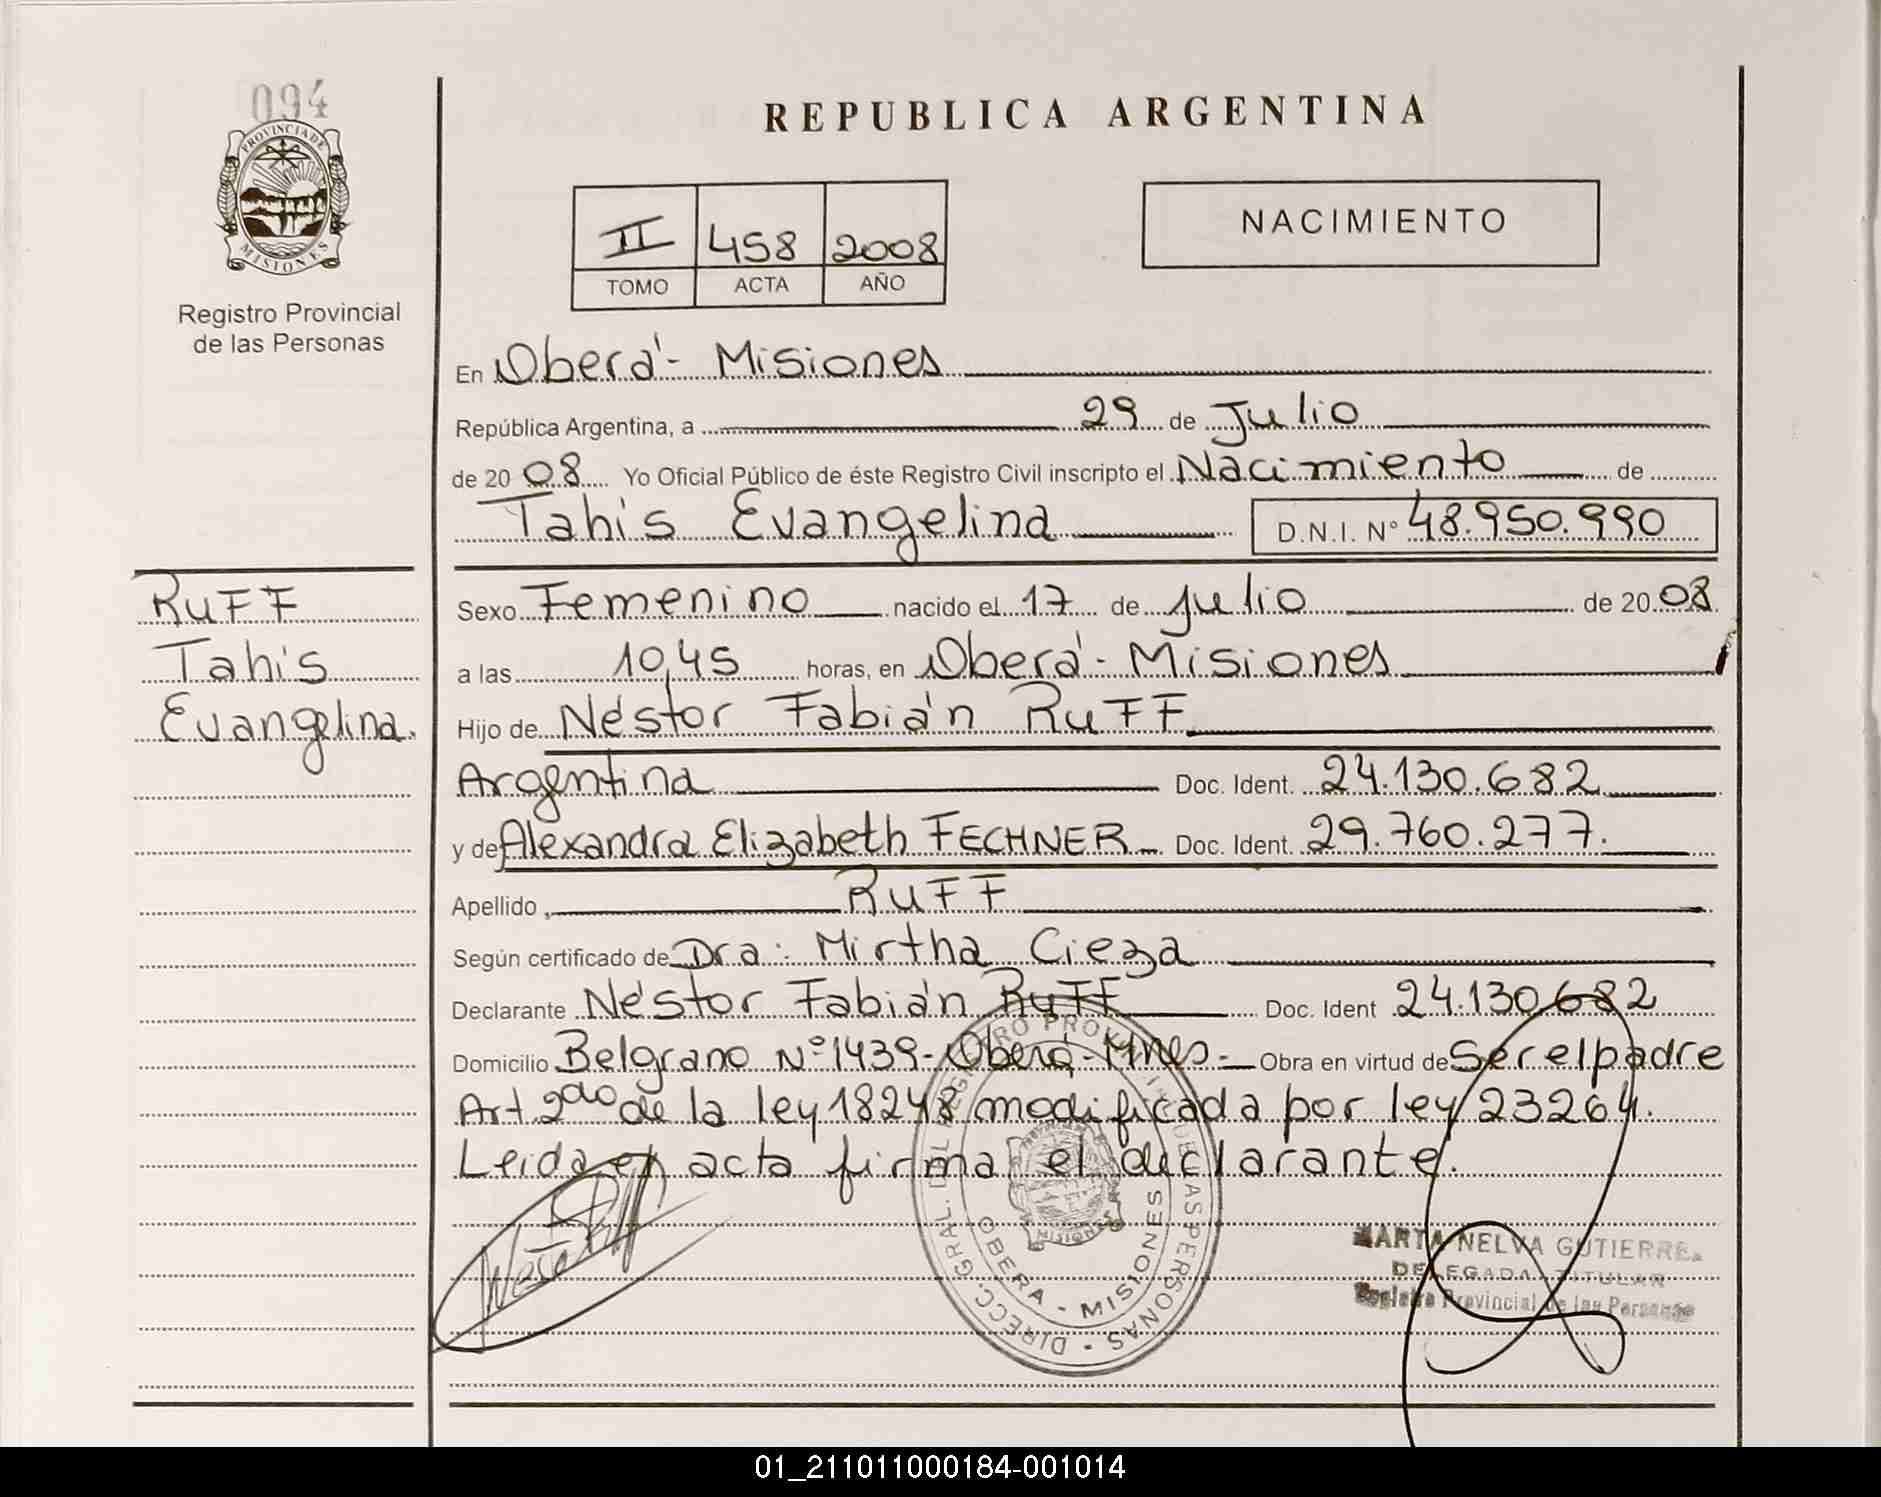 094
PROVINCIA DE
MISIONES
Registro Provincial
de las Personas
REPUBLICA ARGENTINA
II 458 2008
TOMO ACTA AÑO
NACIMIENTO
En Oberá - Misiones
República Argentina, a 29 de Julio
de 2008 Yo Oficial Público de éste Registro Civil inscripto el Nacimiento de
Tahis Evangelina D.N.I. Nº 48.950.990
Ruff
Tahis
Evangelina.
Sexo Femenino nacido el 17 de julio de 2008
a las 10,45 horas, en Oberá - Misiones
Hijo de Néstor Fabián Ruff
Argentina Doc. Ident. 24.130.682
y de Alexandra Elizabeth FECHNER Doc. Ident. 29.760.277.
Apellido, Ruff
Según certificado de Dra: Mirtha Cieza
Declarante Néstor Fabián Ruff Doc. Ident 24.130.682
Domicilio Belgrano Nº 1439 - Oberá - Mnes - Obra en virtud de Ser el padre
Art. 2do de la ley 18248 modificada por ley 23264.
Leida el acta firma el declarante.
DIRECC. GRAL. DEL REGISTRO PROVINCIAL DE LAS PERSONAS
MISIONES
OBERA - MISIONES
MARTA NELVA GUTIERREZ
DELEGADA TITULAR
Registro Provincial de las Personas
01_211011000184-001014